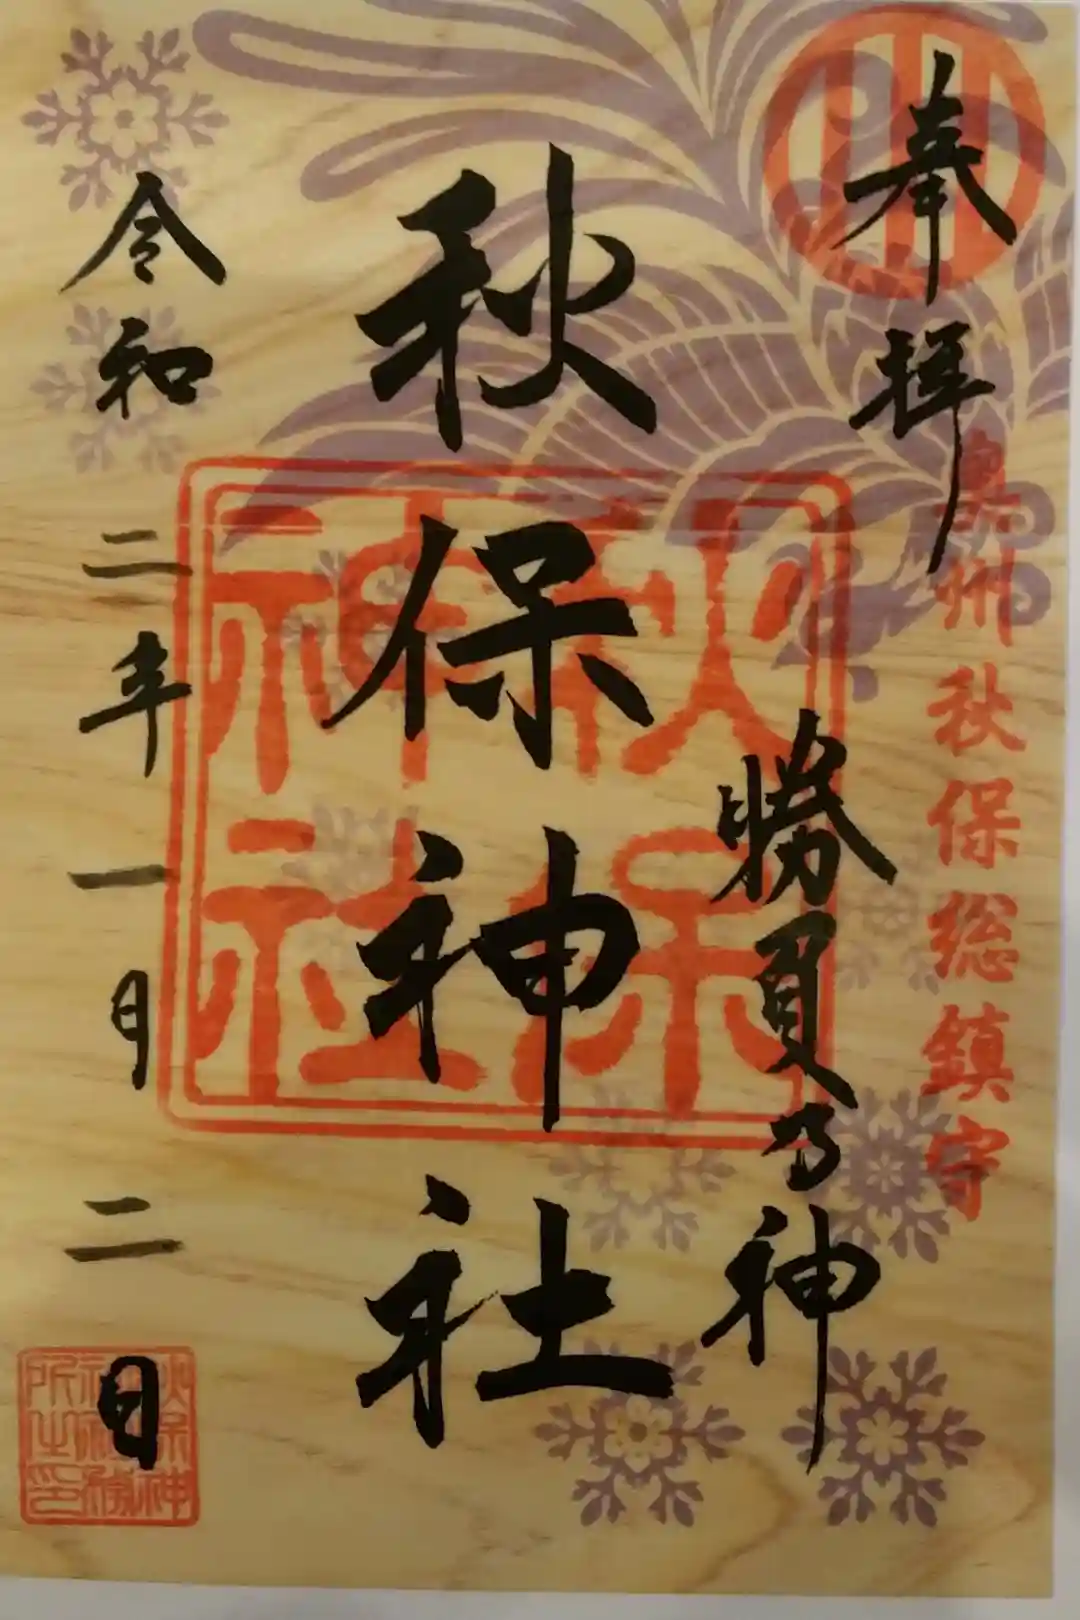 奉拝
奥州秋保総鎮守
勝負乃神
秋保神社
秋保
神社
令和二年一月二日
秋保神
社社務
所之印